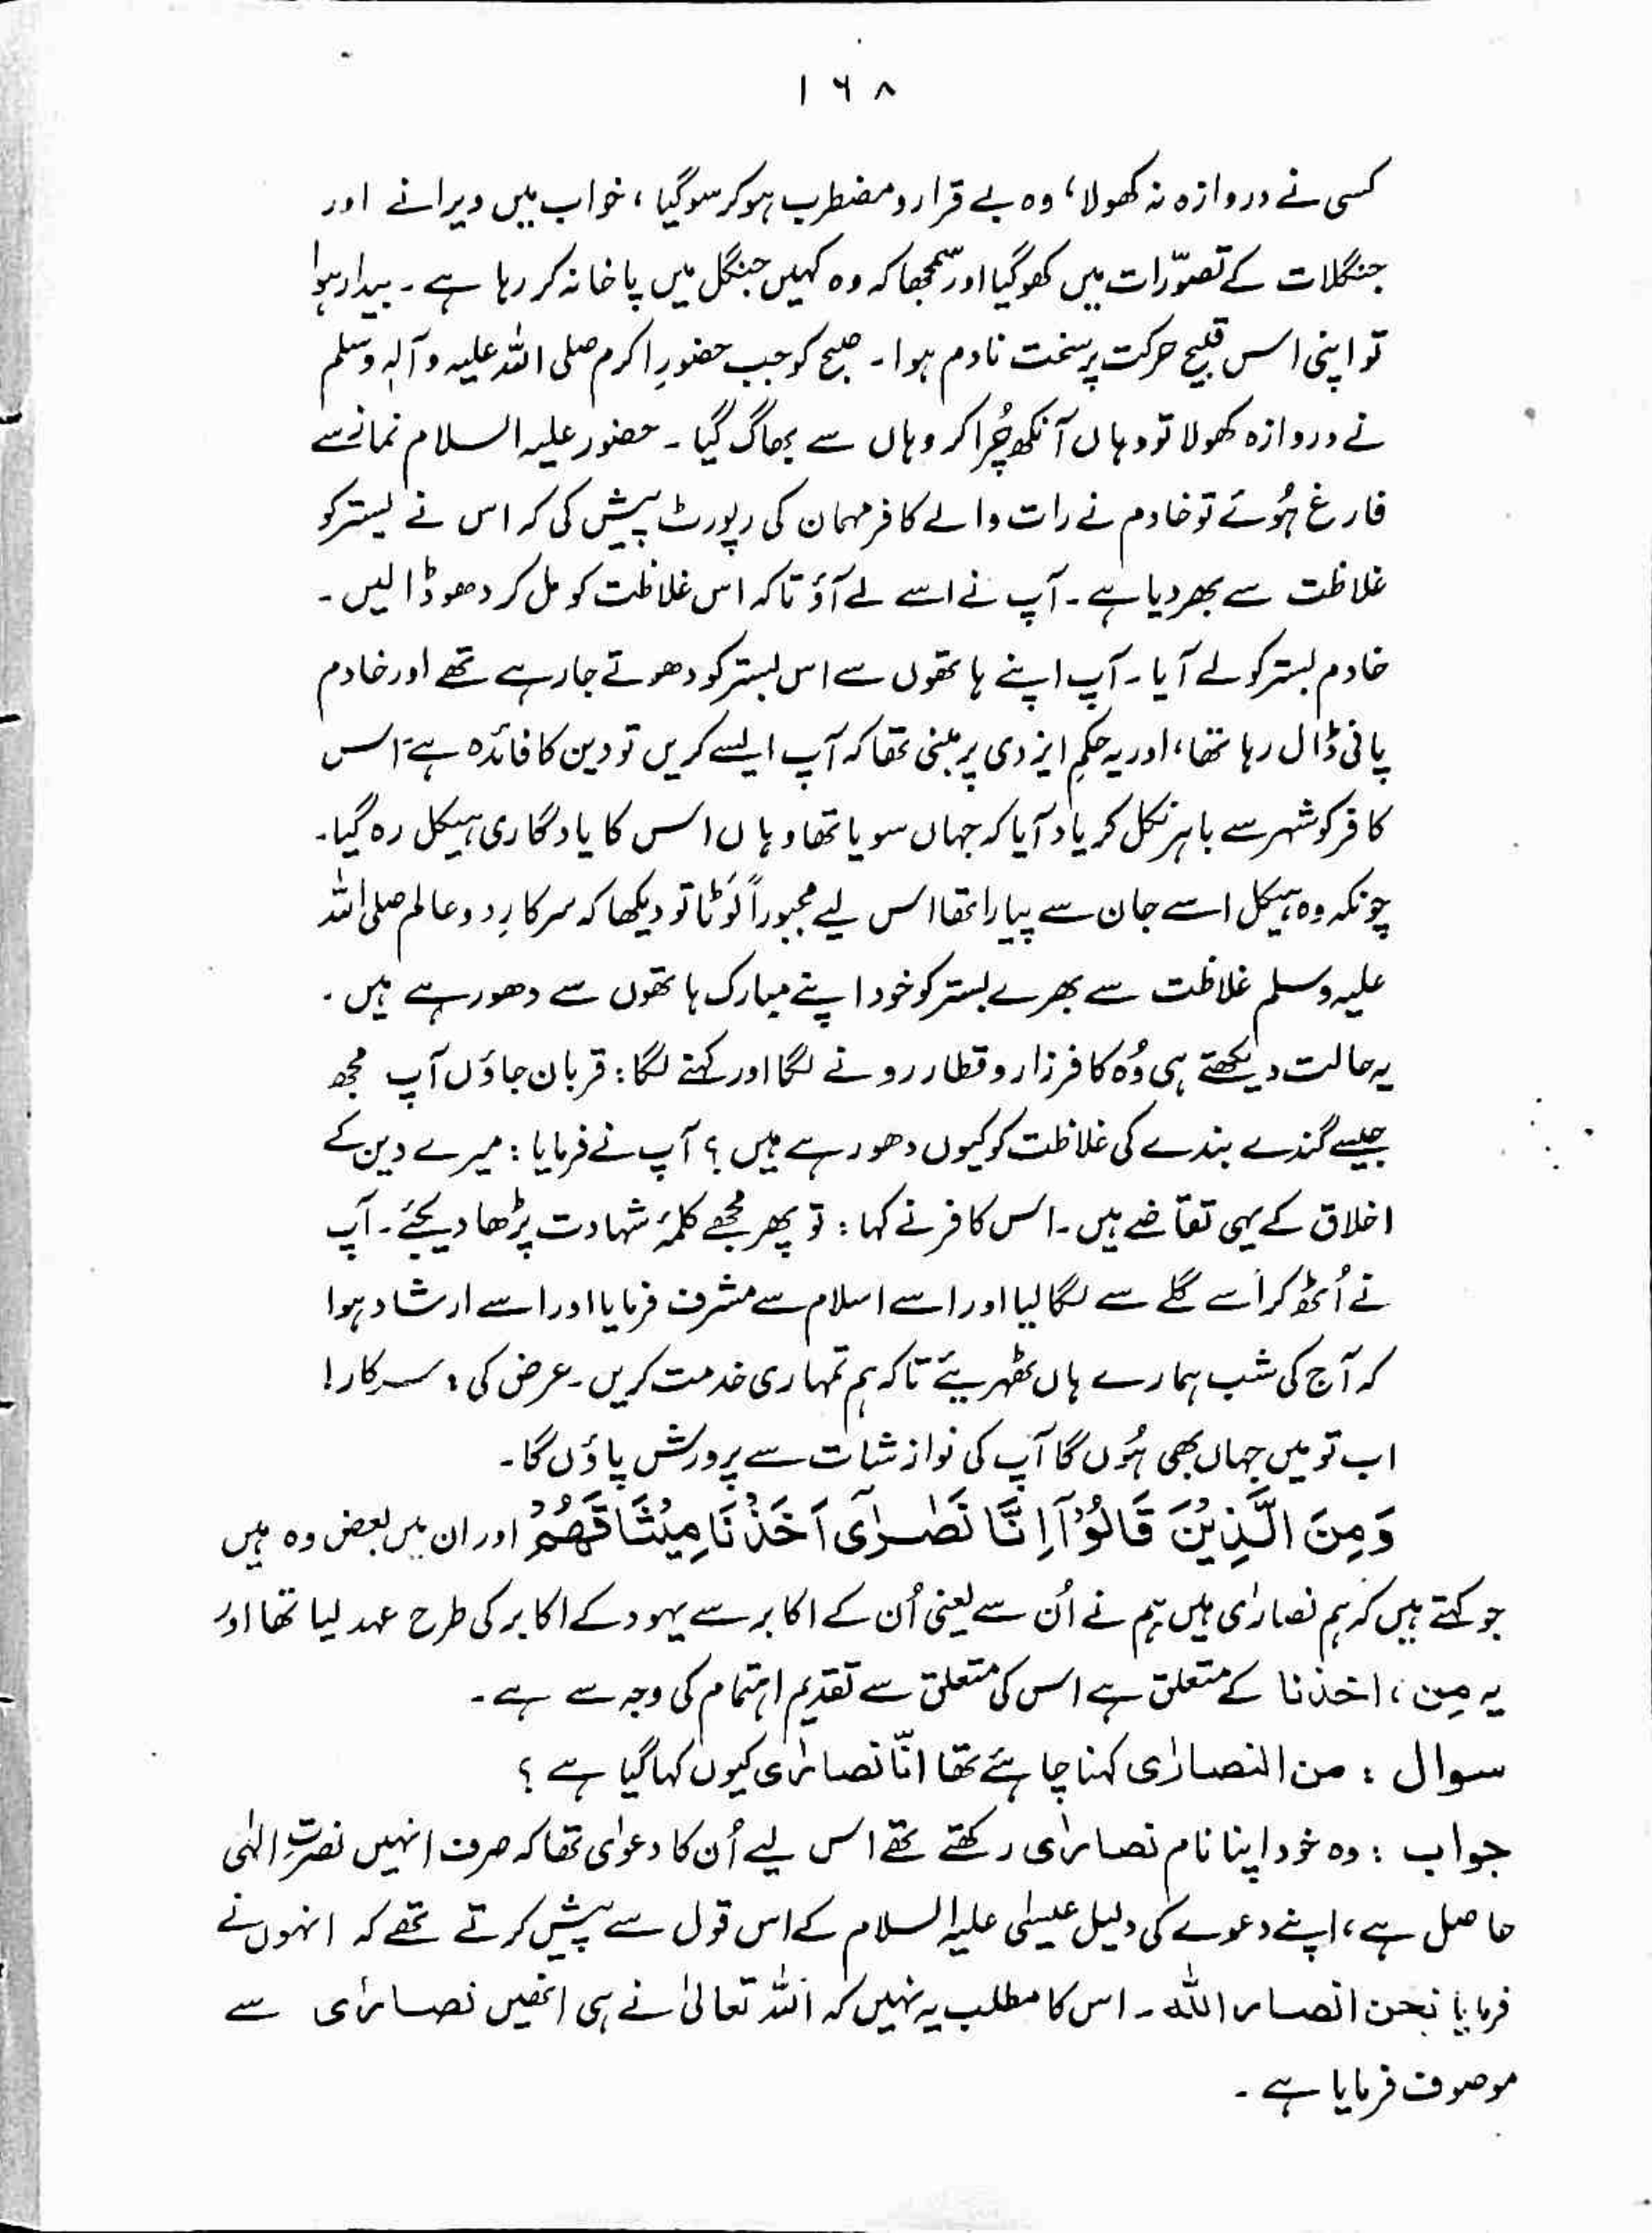 ۱۶۸
کسی نے دروازہ نہ کھولا، وہ بے قرار و مضطرب ہو کر سو گیا، خواب میں ویرانے اور
جنگلات کے تصوّرات میں کھو گیا اور سمجھا کہ وہ کہیں جنگل میں پاخانہ کر رہا ہے۔ بیدار ہوا
تو اپنی اس قبیح حرکت پر سخت نادم ہوا۔ صبح کو جب حضورِ اکرم صلی اللہ علیہ وآلہٖ وسلم
نے دروازہ کھولا تو وہاں آنکھ چُرا کر وہاں سے بھاگ گیا۔ حضور علیہ السلام نماز سے
فارغ ہُوئے تو خادم نے رات والے کافر مہمان کی رپورٹ پیش کی کہ اس نے بستر کو
غلاظت سے بھر دیا ہے۔ آپ نے اسے لے آؤ تاکہ اس غلاظت کو مل کر دھو ڈالیں۔
خادم بستر کو لے آیا۔ آپ اپنے ہاتھوں سے اس بستر کو دھوتے جا رہے تھے اور خادم
پانی ڈال رہا تھا، اور یہ حکمِ ایزدی پر مبنی تھا کہ آپ ایسے کریں تو دین کا فائدہ ہے۔ اس
کافر کو شہر سے باہر نکل کر یاد آیا کہ جہاں سویا تھا وہاں اس کا یادگاری ہیکل رہ گیا۔
چونکہ وہ ہیکل اسے جان سے پیارا تھا اس لیے مجبوراً لَوٹا تو دیکھا کہ سرکارِ دو عالم صلی اللہ
علیہ وسلم غلاظت سے بھرے بستر کو خود اپنے مبارک ہاتھوں سے دھو رہے ہیں۔
یہ حالت دیکھتے ہی وُہ کافر زار و قطار رونے لگا اور کہنے لگا: قربان جاؤں آپ مجھ
جیسے گندے بندے کی غلاظت کو کیوں دھو رہے ہیں؟ آپ نے فرمایا: میرے دین کے
اخلاق کے یہی تقاضے ہیں۔ اس کافر نے کہا: تو پھر مجھے کلمۂ شہادت پڑھا دیجئے۔ آپ
نے اُٹھ کر اُسے گلے سے لگا لیا اور اسے اسلام سے مشرف فرمایا اور اسے ارشاد ہوا
کہ آج کی شب ہمارے ہاں ٹھہریئے تاکہ ہم تمہاری خدمت کریں۔ عرض کی: سرکار!
اب تو میں جہاں بھی ہُوں گا آپ کی نوازشات سے پرورش پاؤں گا۔
وَمِنَ الَّذِيْنَ قَالُوْٓا اِنَّا نَصٰرٰٓى اَخَذْنَا مِيْثَاقَهُمْ اور ان میں بعض وہ ہیں
جو کہتے ہیں کہ ہم نصارٰی ہیں ہم نے اُن سے یعنی اُن کے اکابر سے یہود کے اکابر کی طرح عہد لیا تھا اور
یہ مِن، اخذنا کے متعلق ہے اس کی متعلق سے تقدیم اہتمام کی وجہ سے ہے۔
سوال : من النصارٰی کہنا چاہئے تھا انّا نصارٰی کیوں کہا گیا ہے؟
جواب : وہ خود اپنا نام نصارٰی رکھتے تھے اس لیے اُن کا دعوٰی تھا کہ صرف انہیں نصرتِ الٰہی
حاصل ہے، اپنے دعوے کی دلیل عیسٰی علیہ السلام کے اس قول سے پیش کرتے تھے کہ انہوں نے
فرمایا نحن انصار اللہ۔ اس کا مطلب یہ نہیں کہ اللہ تعالیٰ نے ہی انھیں نصارٰی سے
موصوف فرمایا ہے۔